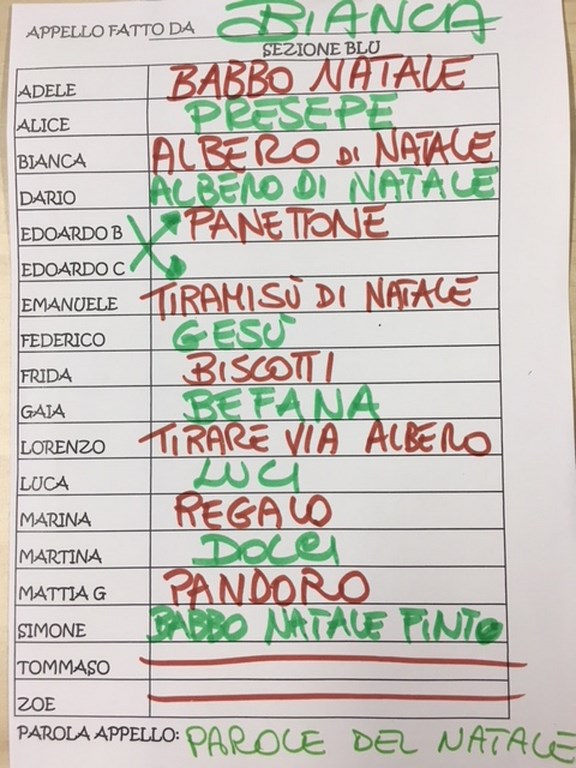 APPELLO FATTO DA BIANCA
SEZIONE BLU
ADELE BABBO NATALE
ALICE PRESEPE
BIANCA ALBERO DI NATALE
DARIO ALBERO DI NATALE
EDOARDO B PANETTONE
EDOARDO C
EMANUELE TIRAMISÙ DI NATALE
FEDERICO GESÙ
FRIDA BISCOTTI
GAIA BEFANA
LORENZO TIRARE VIA ALBERO
LUCA LUCI
MARINA REGALO
MARTINA DOLCI
MATTIA G PANDORO
SIMONE BABBO NATALE FINTO
TOMMASO
ZOE
PAROLA APPELLO: PAROLE DEL NATALE